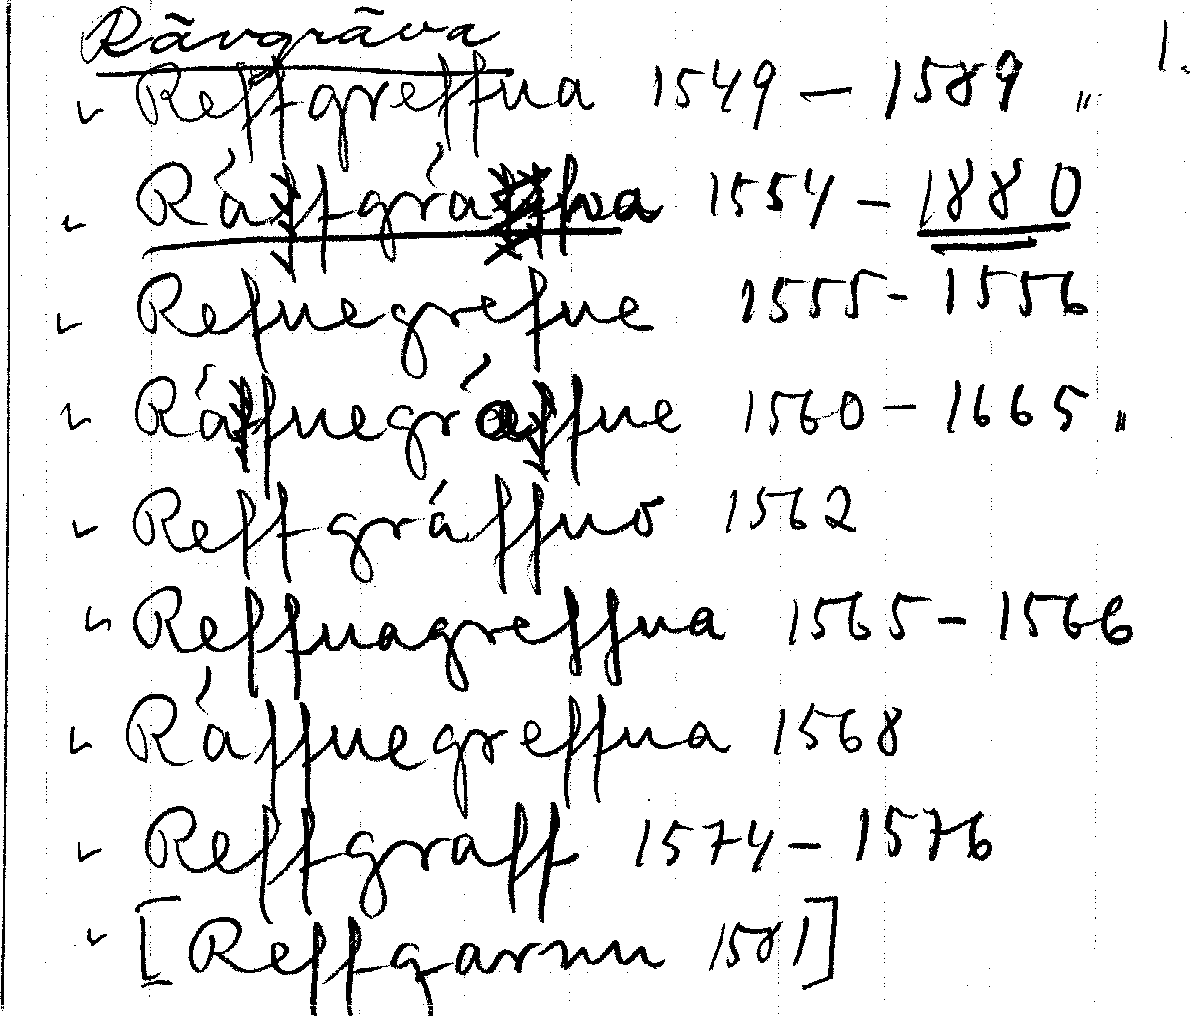 Rävgräva 1.
✓ Reffgreffua 1549 – 1589 "
✓ Räfgräfva 1554 – 1880
✓ Refuegrefue 1555 - 1556
✓ Räffuegräffue 1560 – 1665 "
✓ Reffgräffuo 1562
✓ Reffuagreffua 1565 – 1566
✓ Räffuegreffua 1568
✓ Reffgraff 1574 – 1576
✓ [Reffgarnn 1581]